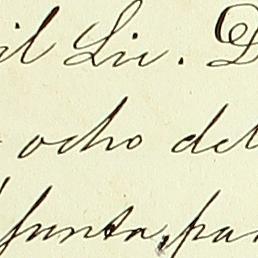 il Lic. D
ocho del
Junta, pa